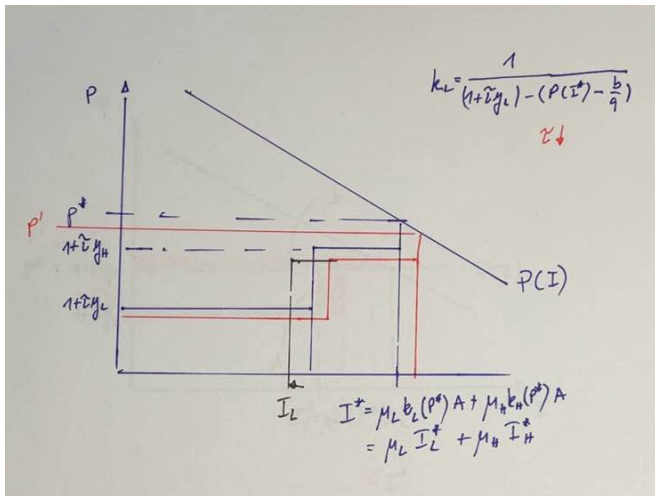 k_L = 1 / ((1+τ̃y_L) - (P(I*) - b/q))
τ↓
P
P*
P'
1+τ̃y_H
1+τ̃y_L
P(I)
I_L
I* = μ_L k_L(P*)A + μ_H k_H(P*)A
= μ_L I_L* + μ_H I_H*